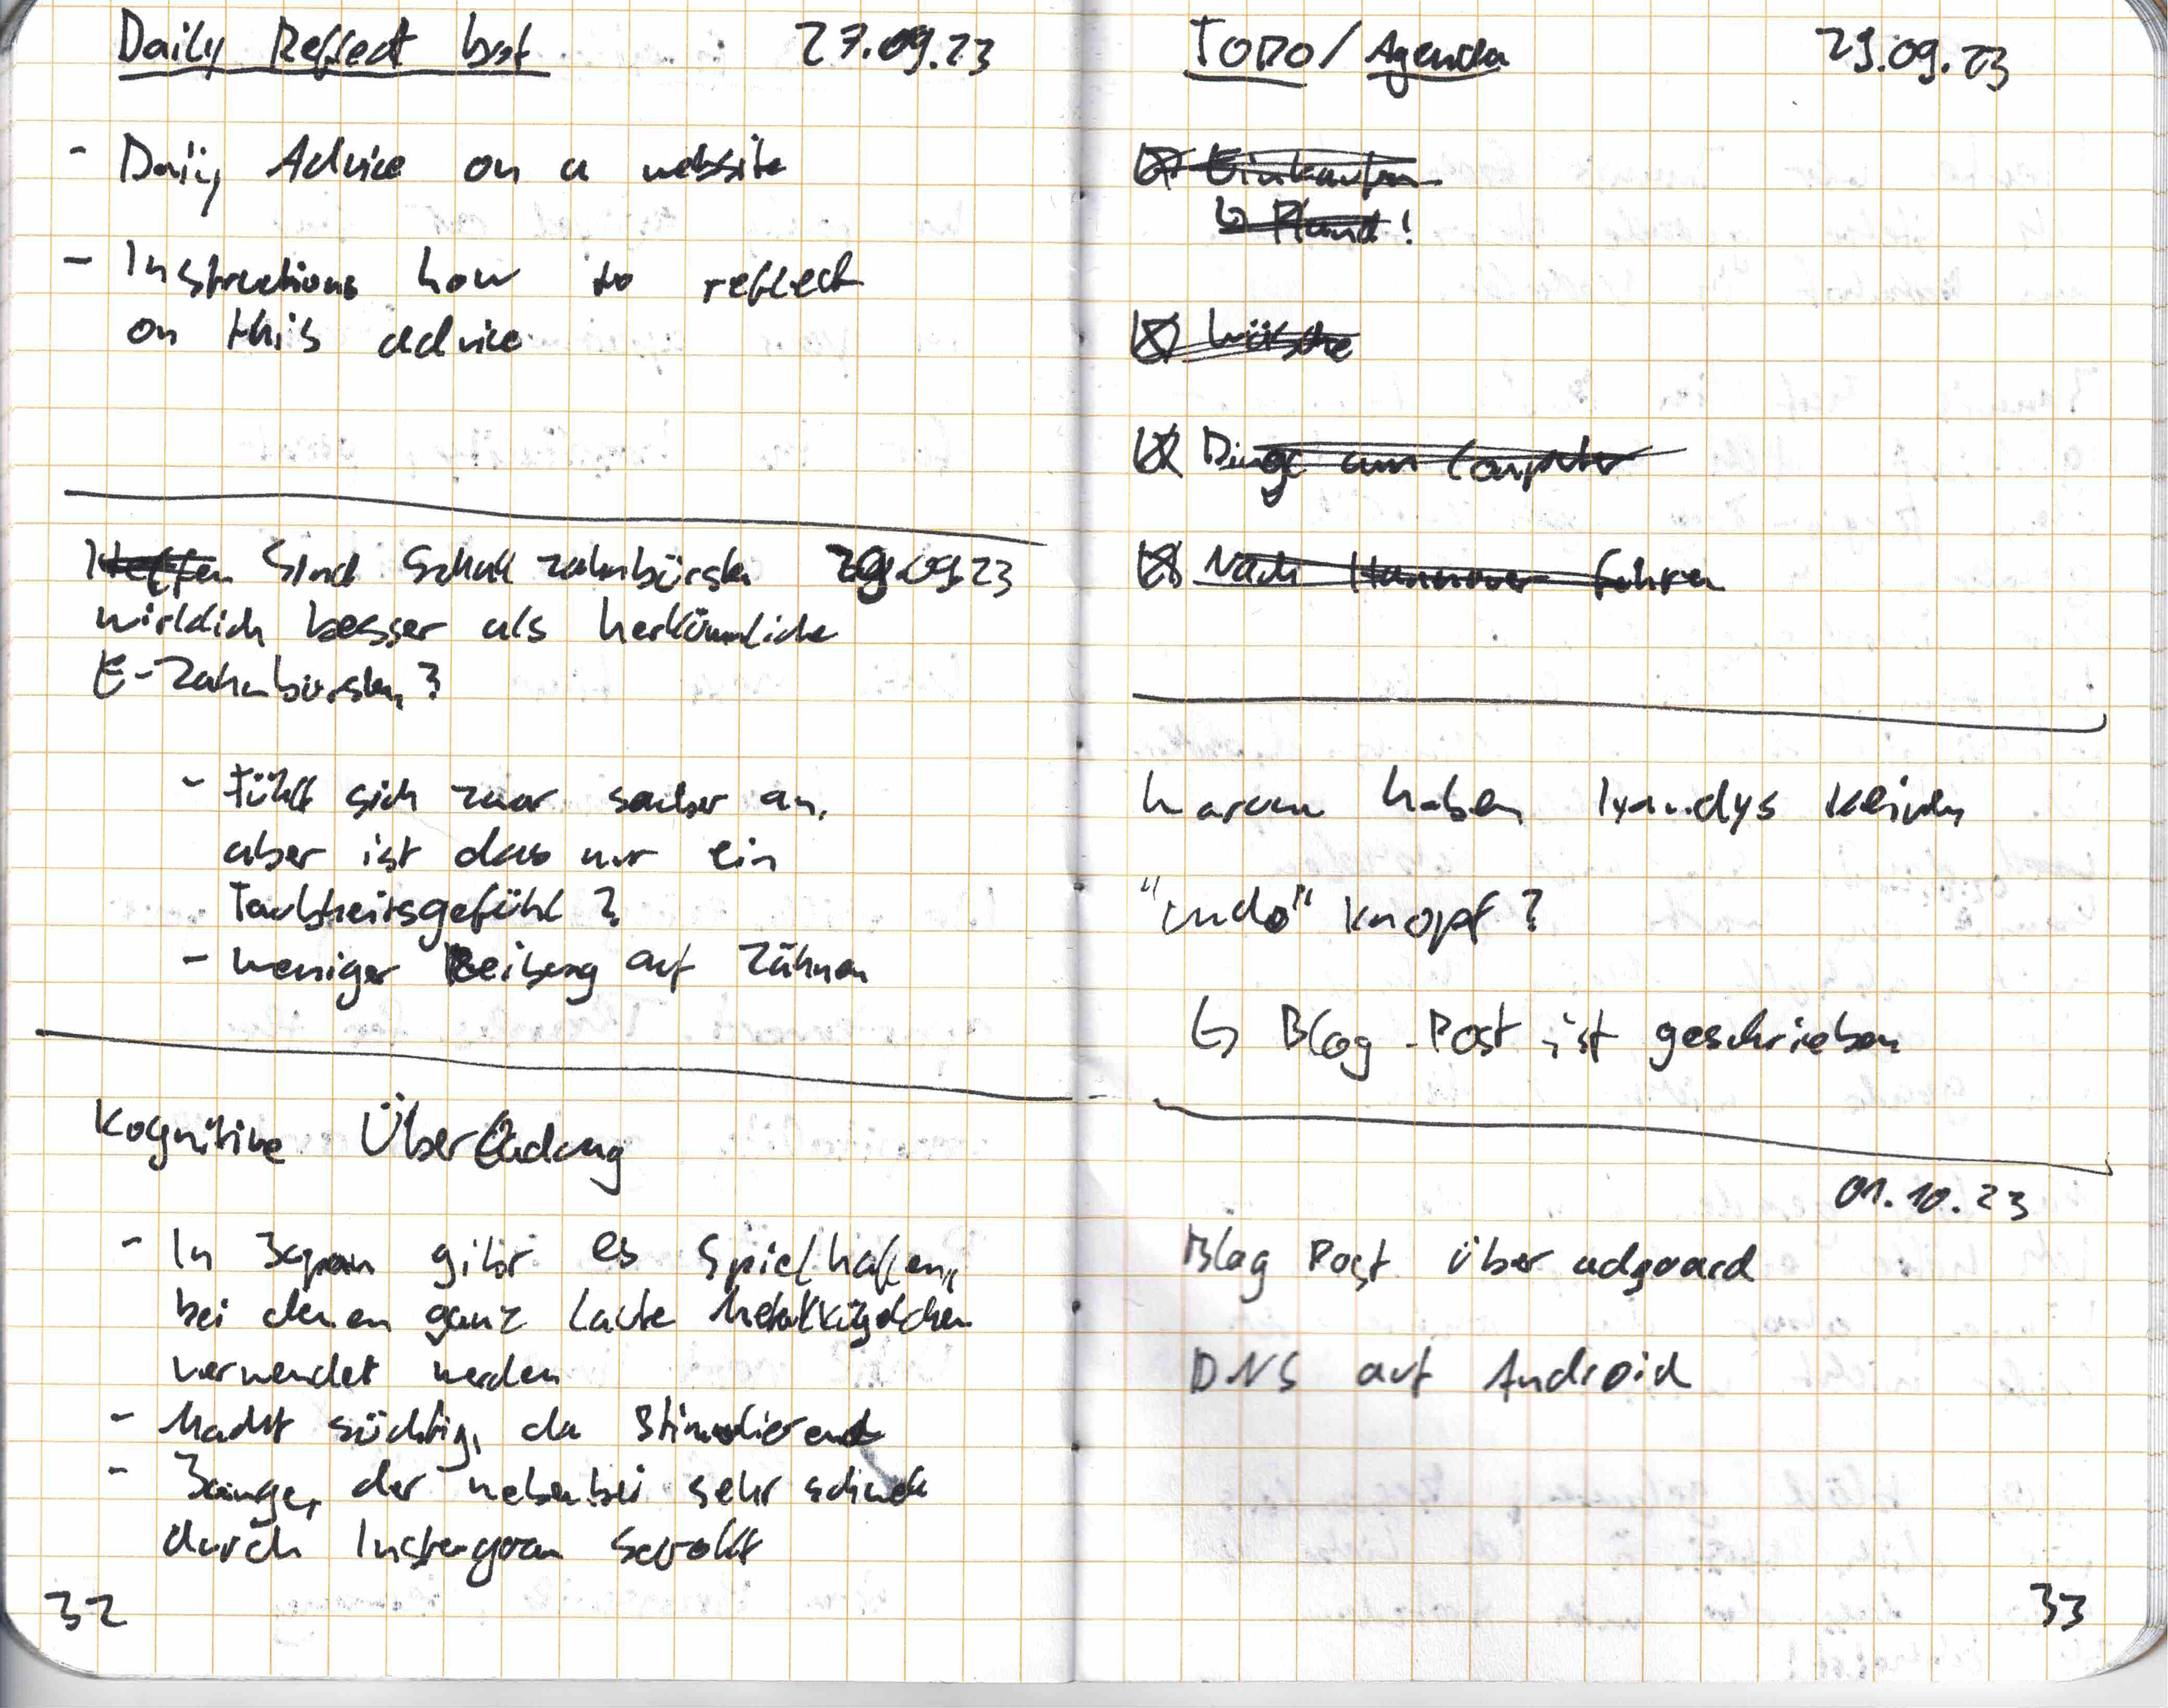 Daily Reflect bot 27.09.23
- Daily Advice on a website
- Instructions how to reflect
on this advice
Helfen Sind Schallzahnbürsten 29.09.23
wirklich besser als herkömmliche
E-Zahnbürsten?
- Fühlt sich zwar sauber an,
aber ist das nur ein
Taubheitsgefühl?
- weniger Reibung auf Zähnen
Kognitive Überladung
- In Japan gibt es Spielhallen,
bei denen ganz laute Metallkügelchen
verwendet werden
- Macht süchtig, da stimulierend
- Junge, der nebenbei sehr schnell
durch Instagram scrollt
32
TODO/Agenda 29.09.23
Einkaufen
↳ Pfand!
Wäsche
Dinge am Computer
Nach Hannover fahren
Warum haben Handys keinen
"undo" Knopf?
↳ Blog-Post ist geschrieben
01.10.23
Blog Post über adguard
DNS auf Android
33